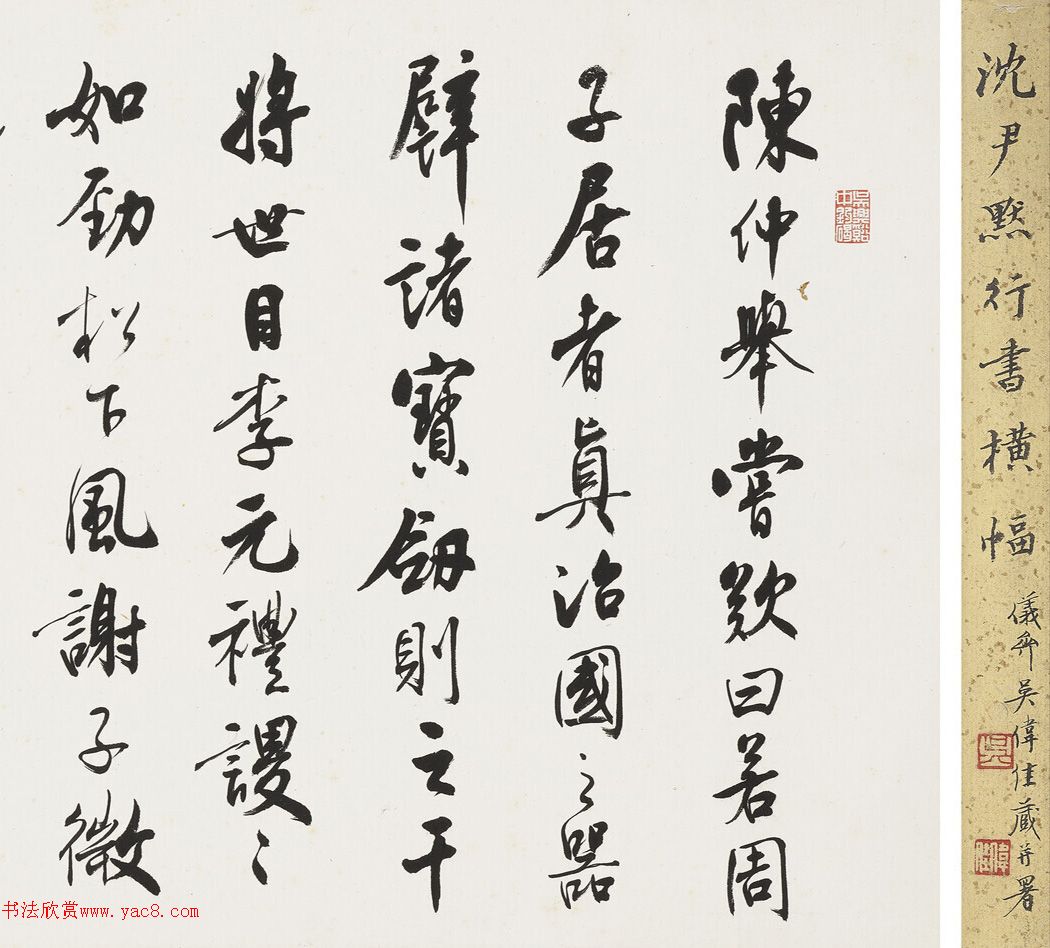 沈尹默行書橫幅
吳偉佳藏并署
吳
陳仲舉嘗歎曰若周
子居者眞治國之器
辟諸寶劒則之干
將世目李元禮謖〻
如勁松下風謝子微
书法欣赏www.yac8.com